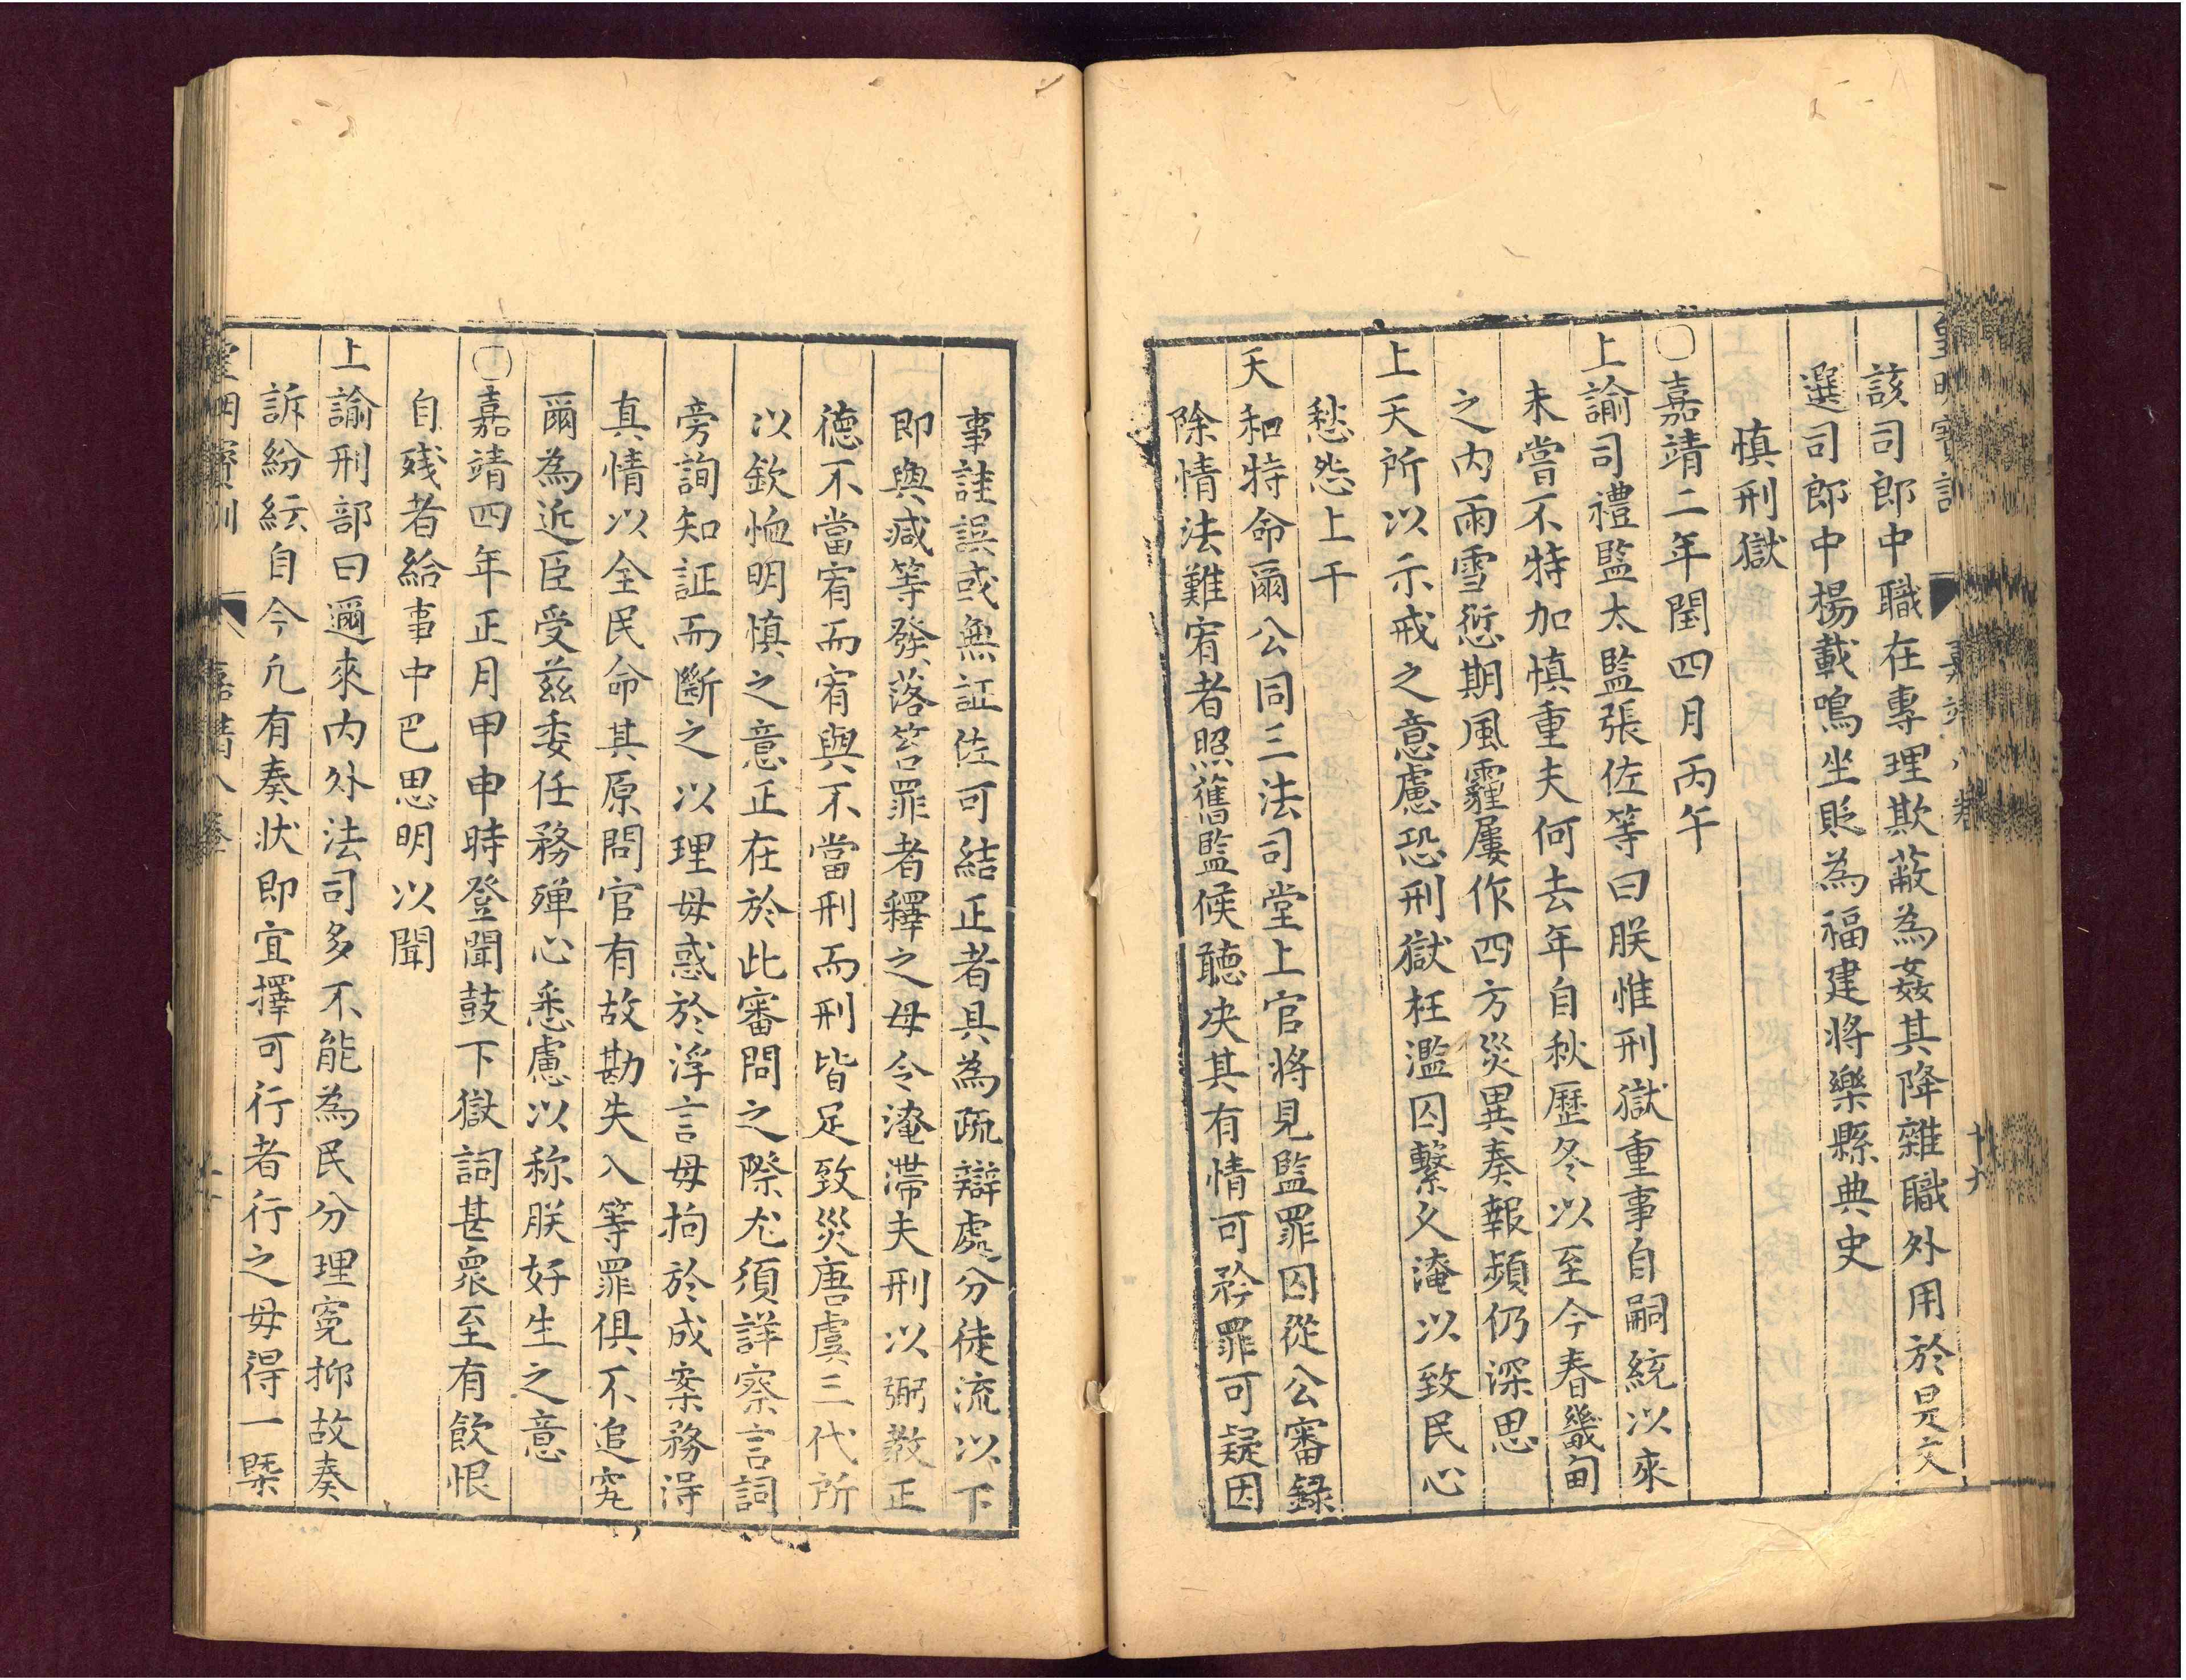 皇明寶訓 嘉靖八卷 十九
該司郎中職在專理欺蔽為姦其降雜職外用於是文
選司郎中楊載鳴坐貶為福建將樂縣典史
慎刑獄
○嘉靖二年閏四月丙午
上諭司禮監太監張佐等曰朕惟刑獄重事自嗣統以來
未嘗不特加慎重夫何去年自秋歷冬以至今春畿甸
之內雨雪愆期風霾屢作四方災異奏報頻仍深思
上天所以示戒之意慮恐刑獄枉濫囚繫久淹以致民心
愁怨上干
天和特命爾公同三法司堂上官將見監罪囚從公審録
除情法難宥者照舊監候聽决其有情可矜罪可疑因
事詿誤或無証佐可結正者具為疏辯處分徒流以下
即與减等發落笞罪者釋之毋令淹滯夫刑以弼教正
德不當宥而宥與不當刑而刑皆足致災唐虞三代所
以欽恤明慎之意正在於此審問之際尤須詳察言詞
旁詢知証而斷之以理毋惑於浮言毋拘於成案務得
真情以全民命其原問官有故勘失入等罪俱不追究
爾為近臣受茲委任務殫心悉慮以称朕好生之意
○嘉靖四年正月甲申時登聞鼓下獄詞甚衆至有飲恨
自殘者給事中巴思明以聞
上諭刑部曰邇來内外法司多不能為民分理寃抑故奏
訴紛紜自今凢有奏狀即宜擇可行者行之毋得一槩
皇明寶訓 嘉靖八卷